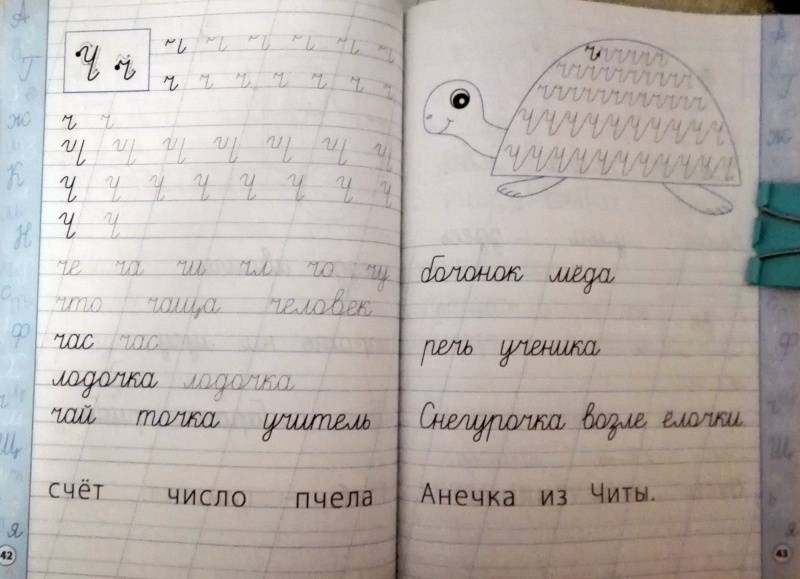 Ч ч
ч ч ч ч ч ч ч
ч ч
Ч Ч Ч Ч Ч Ч Ч Ч
Ч Ч
че ча чи чл чо чу
что чаща человек
час час
лодочка лодочка
чай точка учитель
счёт число пчела
42
бочонок мёда
речь ученика
Снегурочка возле ёлочки
Анечка из Читы.
43